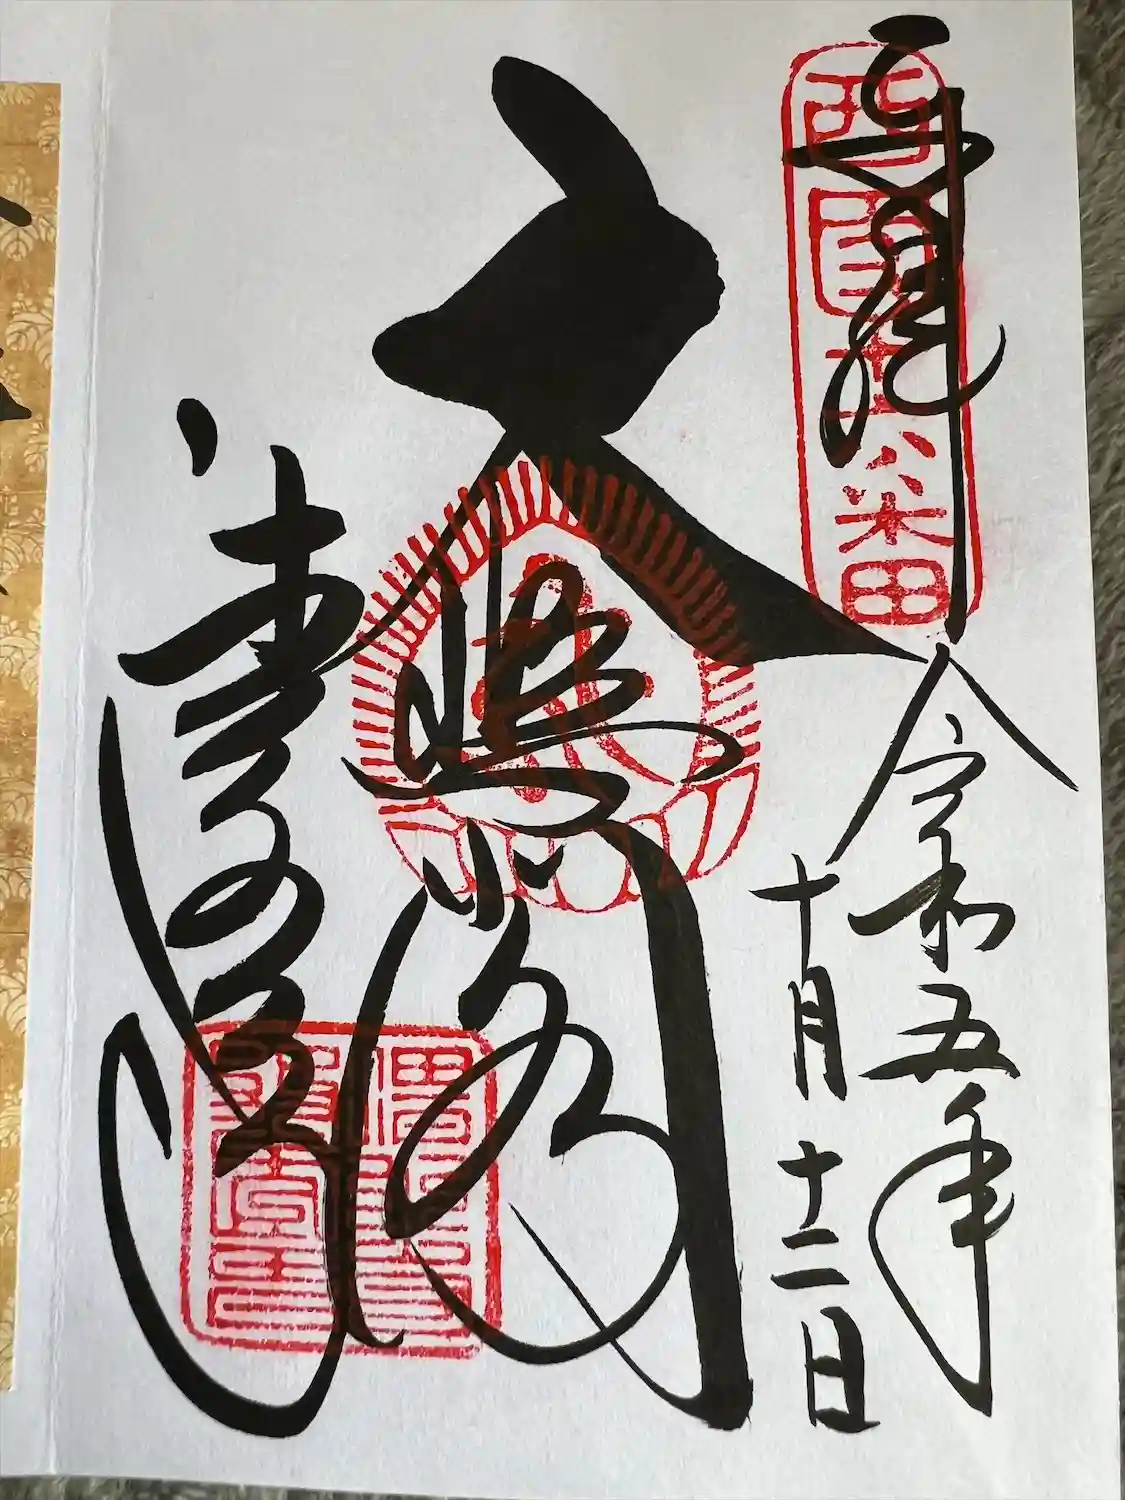 奉拝
西国十六番
令和五年
十月十二日
大悲閣
清水寺